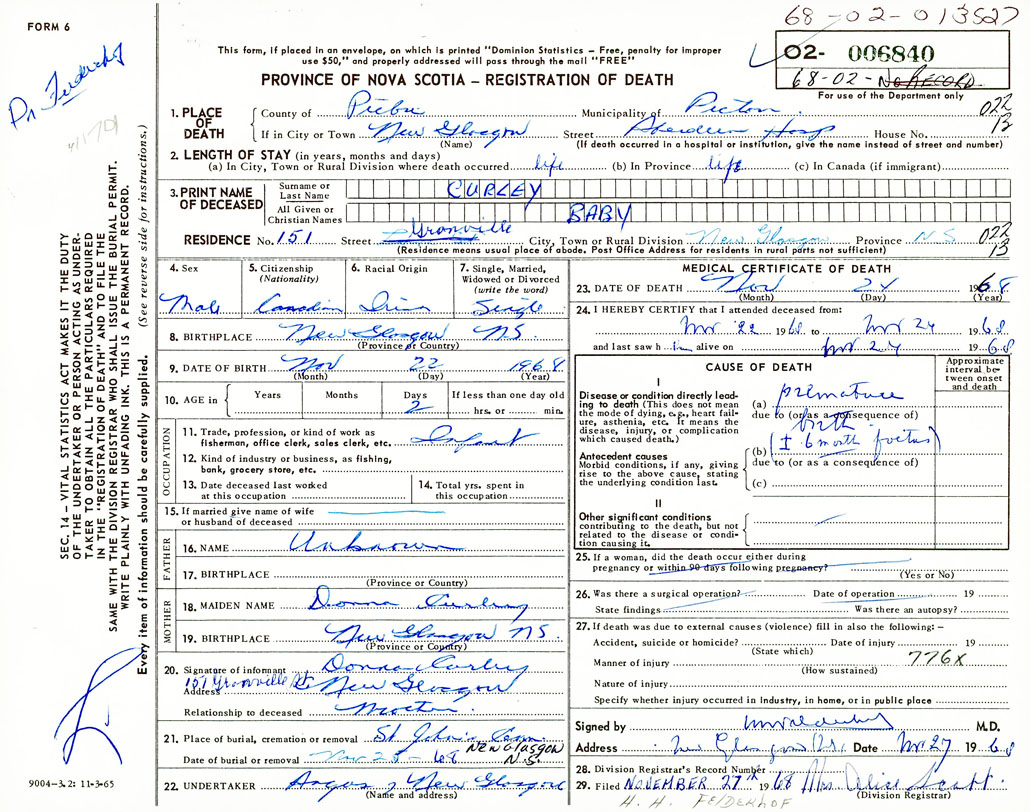 FORM 6
68-02-013527
Dr Feiderhof
41170
This form, if placed in an envelope, on which is printed "Dominion Statistics – Free, penalty for improper
use $50," and properly addressed will pass through the mail "FREE"
02- 006840
68-02-No RECORD
For use of the Department only
PROVINCE OF NOVA SCOTIA – REGISTRATION OF DEATH
022
13
1. PLACE OF DEATH
County of Pictou Municipality of Pictou
If in City or Town New Glasgow Street Aberdeen Hosp House No.
(Name) (If death occurred in a hospital or institution, give the name instead of street and number)
2. LENGTH OF STAY (in years, months and days)
(a) In City, Town or Rural Division where death occurred life (b) In Province life (c) In Canada (if immigrant)
3. PRINT NAME OF DECEASED
Surname or Last Name CURLEY
All Given or Christian Names BABY
RESIDENCE No. 151 Street Granville City, Town or Rural Division New Glasgow Province NS
(Residence means usual place of abode. Post Office Address for residents in rural parts not sufficient)
022
13
4. Sex Male
5. Citizenship (Nationality) Canadian
6. Racial Origin Irish
7. Single, Married, Widowed or Divorced (write the word) Single
8. BIRTHPLACE New Glasgow NS.
(Province or Country)
9. DATE OF BIRTH Nov 22 1968
(Month) (Day) (Year)
10. AGE in Years Months Days 2 If less than one day old hrs. or min.
OCCUPATION
11. Trade, profession, or kind of work as fisherman, office clerk, sales clerk, etc. Infant
12. Kind of industry or business, as fishing, bank, grocery store, etc.
13. Date deceased last worked at this occupation
14. Total yrs. spent in this occupation
15. If married give name of wife or husband of deceased
FATHER
16. NAME Unknown
17. BIRTHPLACE
(Province or Country)
MOTHER
18. MAIDEN NAME Donna Curley
19. BIRTHPLACE New Glasgow NS.
(Province or Country)
20. Signature of informant Donna Curley
Address 151 Granville St New Glasgow
Relationship to deceased Mother
21. Place of burial, cremation or removal St John's Cem. New Glasgow N.S.
Date of burial or removal Nov 25 - 68
22. UNDERTAKER Angus New Glasgow
(Name and address)
MEDICAL CERTIFICATE OF DEATH
23. DATE OF DEATH Nov 24 1968
(Month) (Day) (Year)
24. I HEREBY CERTIFY that I attended deceased from:
Nov 22 1968 to Nov 24 1968
and last saw him alive on Nov 24 1968
CAUSE OF DEATH
Approximate interval between onset and death
I
Disease or condition directly leading to death (This does not mean the mode of dying, e.g., heart failure, asthenia, etc. It means the disease, injury, or complication which caused death.)
(a) premature
due to (or as a consequence of)
birth
(b) (± 6 month foetus)
Antecedent causes
Morbid conditions, if any, giving rise to the above cause, stating the underlying condition last.
due to (or as a consequence of)
(c)
II
Other significant conditions contributing to the death, but not related to the disease or condition causing it.
25. If a woman, did the death occur either during
pregnancy or within 90 days following pregnancy?
(Yes or No)
26. Was there a surgical operation? Date of operation 19
State findings Was there an autopsy?
27. If death was due to external causes (violence) fill in also the following: –
Accident, suicide or homicide? Date of injury 19
(State which)
Manner of injury 776X
(How sustained)
Nature of injury
Specify whether injury occurred in Industry, in home, or in public place
Signed by M.D.
Address New Glasgow N.S. Date Nov 27 1968
28. Division Registrar's Record Number
29. Filed NOVEMBER 27th 1968 Mrs. Alice Scott
(Division Registrar)
H. H. FELDERHOF
SEC. 14 – VITAL STATISTICS ACT MAKES IT THE DUTY
OF THE UNDERTAKER OR PERSON ACTING AS UNDER-
TAKER TO OBTAIN ALL THE PARTICULARS REQUIRED
IN THE "REGISTRATION OF DEATH" AND TO FILE THE
SAME WITH THE DIVISION REGISTRAR WHO SHALL ISSUE THE BURIAL PERMIT.
WRITE PLAINLY WITH UNFADING INK. THIS IS A PERMANENT RECORD.
Every item of information should be carefully supplied. (See reverse side for instructions.)
9004-3.2: 11-3-65